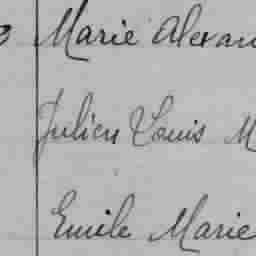 Marie Alexan
Julien Louis M
Emile Marie